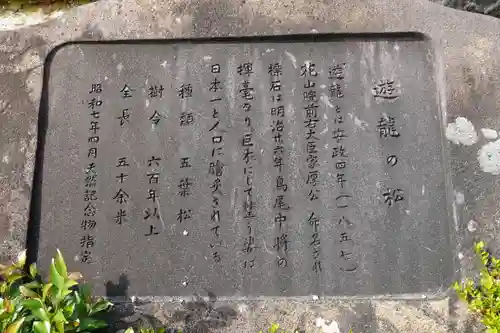 遊龍の松
遊龍とは安政四年(一八五七)
花山院前右大臣家厚公 命名され
標石は明治廿六年 鳥尾中将の
揮毫なり巨木にして壮う梁は
日本一と人口に膾炙されている
種類 五葉松
樹令 六百年以上
全長 五十余米
昭和七年四月天然記念物指定